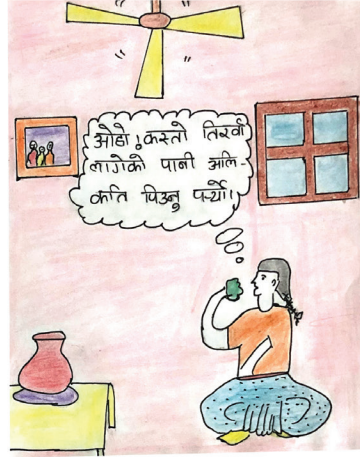 ओहो ! कस्तो तिर्खा
लागेको पानी अलि-
कति पिउनु पर्‍यो।